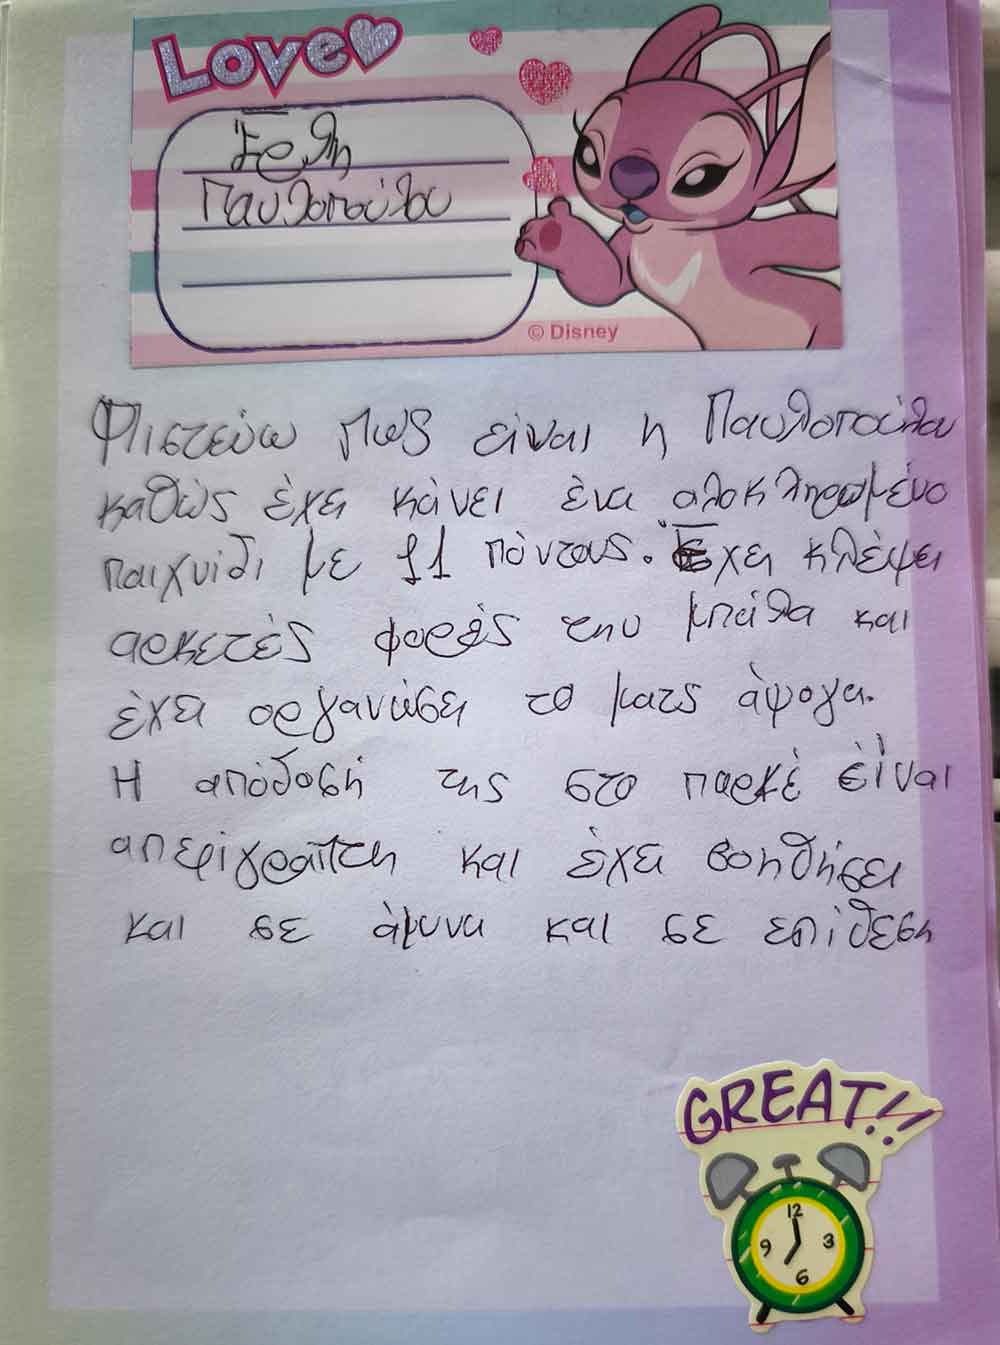 Love
Έρθη
Παυλοπούλου
© Disney
Πιστεύω πως είναι η Παυλοπούλου
καθώς έχει κάνει ένα ολοκληρωμένο
παιχνίδι με 11 πόντους. Έχει κλέψει
αρκετές φορές την μπάλα και
έχει οργανώσει το ματς άψογα.
Η απόδοσή της στο παρκέ είναι
απερίγραπτη και έχει βοηθήσει
και σε άμυνα και σε επίθεση
GREAT!!
12
9 3
6